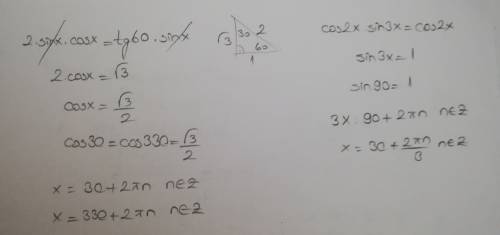 2.sinx.cosx=tg60.sinx
√3 30 2
60
1
2.cosx=√3
cosx=√3/2
cos30=cos330=√3/2
x = 30+2πn n∈Z
x = 330+2πn n∈Z
cos2x sin3x=cos2x
sin3x=1
sin90=1
3x.90+2πn n∈Z
x = 30+2πn/3 n∈Z